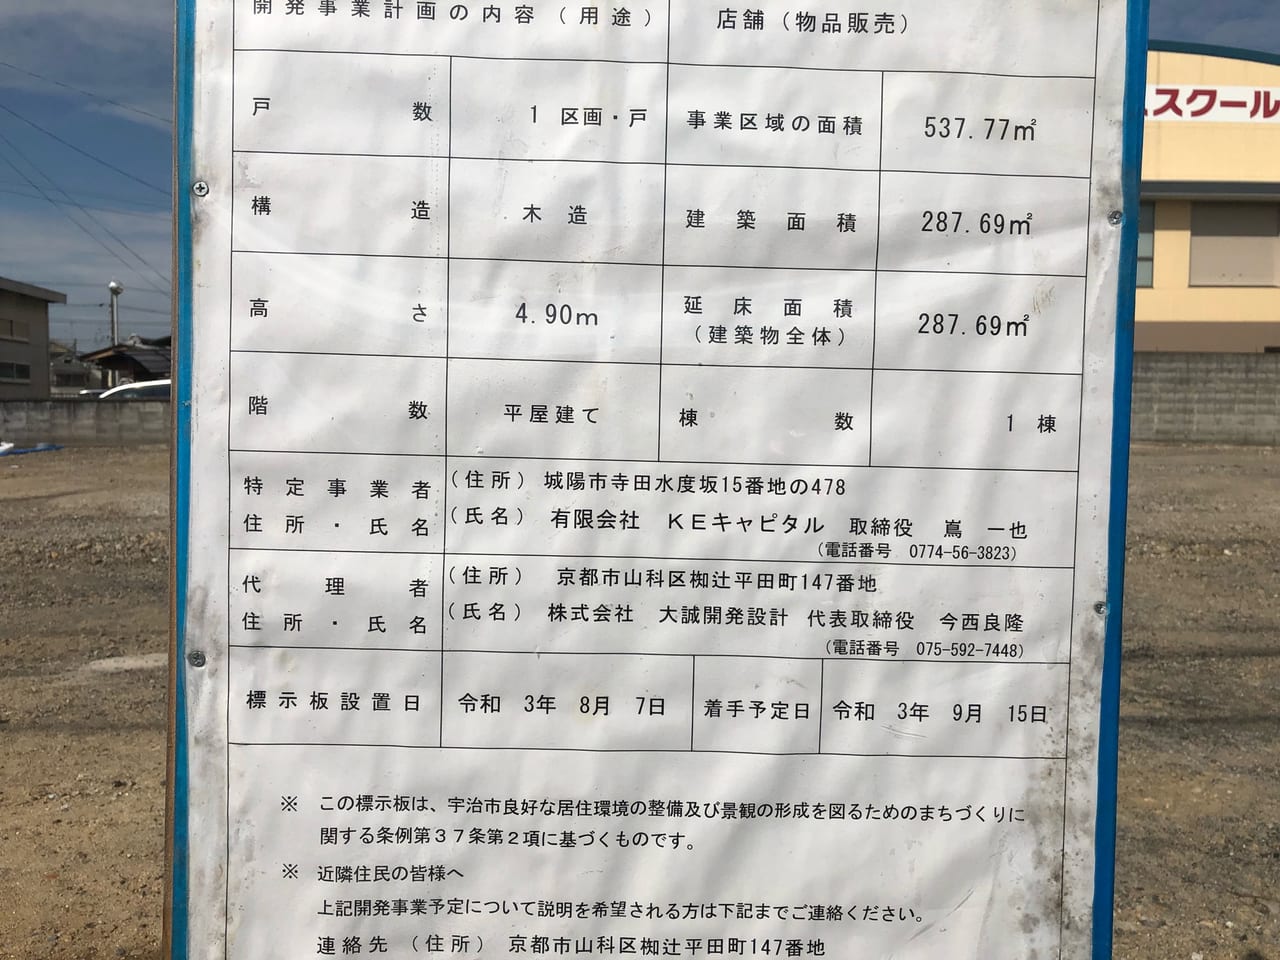 開発事業計画の内容（用途） 店舗（物品販売）
戸数 1 区画・戸 事業区域の面積 537.77㎡
構造 木造 建築面積 287.69㎡
高さ 4.90m 延床面積（建築物全体） 287.69㎡
階数 平屋建て 棟数 1 棟
特定事業者住所・氏名
（住所） 城陽市寺田水度坂15番地の478
（氏名） 有限会社 KEキャピタル 取締役 嶌 一也
（電話番号 0774-56-3823）
代理者住所・氏名
（住所） 京都市山科区椥辻平田町147番地
（氏名） 株式会社 大誠開発設計 代表取締役 今西良隆
（電話番号 075-592-7448）
標示板設置日 令和 3年 8月 7日 着手予定日 令和 3年 9月 15日
※ この標示板は、宇治市良好な居住環境の整備及び景観の形成を図るためのまちづくりに
関する条例第37条第2項に基づくものです。
※ 近隣住民の皆様へ
上記開発事業予定について説明を希望される方は下記までご連絡ください。
連絡先（住所） 京都市山科区椥辻平田町147番地
スクール